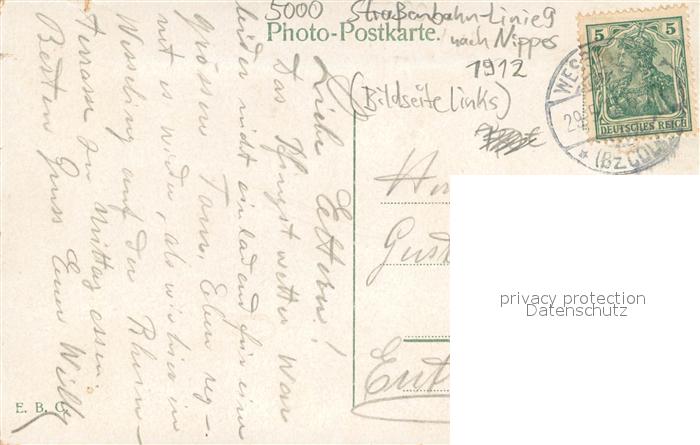 5000 Straßenbahn-Linie 9
Photo-Postkarte. nach Nippes
1912
(Bildseite links)
5 5
DEUTSCHES REICH
WES
29.5
* (BZ. CÖLN
Liebe Eltern!
Das Pfingstwetter war
leider nicht einladend für eine
grössere Tour. Eben reg-
net es wieder, als wir hier in
Wesseling auf der Rhein-
terrasse zu Mittag essen.
Besten Gruss Euer Willy
Gust
E. B. C.
privacy protection
Datenschutz